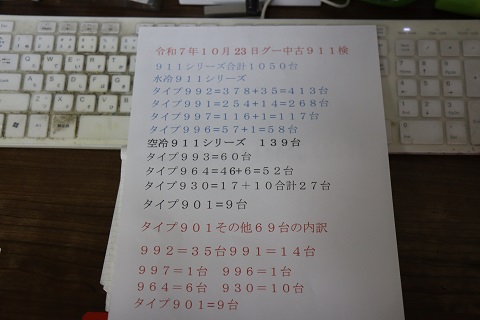 令和７年１０月２３日グー中古９１１検
９１１シリーズ合計１０５０台
水冷９１１シリーズ
タイプ９９２=３７８+３５=４１３台
タイプ９９１=２５４+１４=２６８台
タイプ９９７=１１６+１=１１７台
タイプ９９６=５７+１=５８台
空冷９１１シリーズ　１３９台
タイプ９９３=６０台
タイプ９６４=46+６=５２台
タイプ９３０=１７＋１０合計２７台
タイプ９０１=９台
タイプ９０１その他６９台の内訳
９９２＝３５台９９１＝１４台
９９７＝１台　９９６＝１台
９６４＝６台　９３０＝１０台
タイプ９０１=９台